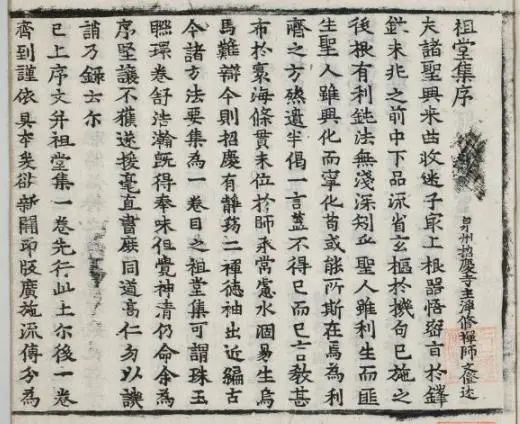 祖堂集序
泉州招慶寺主淨修禪師文僜述
夫諸聖興来曲收迷子㝡上根器悟密旨於鋒
鋩未兆之前中下品流省玄樞於機句已施之
後根有利鈍法無淺深矧乎聖人雖利生而匪
生聖人雖興化而寧化苟或能所斯在焉為利
濟之方然遺半偈一言盖不得已而已言教甚
布於寰海條貫未位於師承常慮水涸易生烏
馬難辯今則招慶有靜筠二禪德袖出近編古
今諸方法要集為一卷目之祖堂集可謂珠玉
聯環卷舒浩瀚既得奉味但覺神清仍命余為
序堅讓不獲遂援毫直書庶同道高仁勿以譏
誚乃錄云尔
已上序文并祖堂集一卷先行此土尔後一卷
齊到謹依具本爰欲新開印版廣施流傳分為